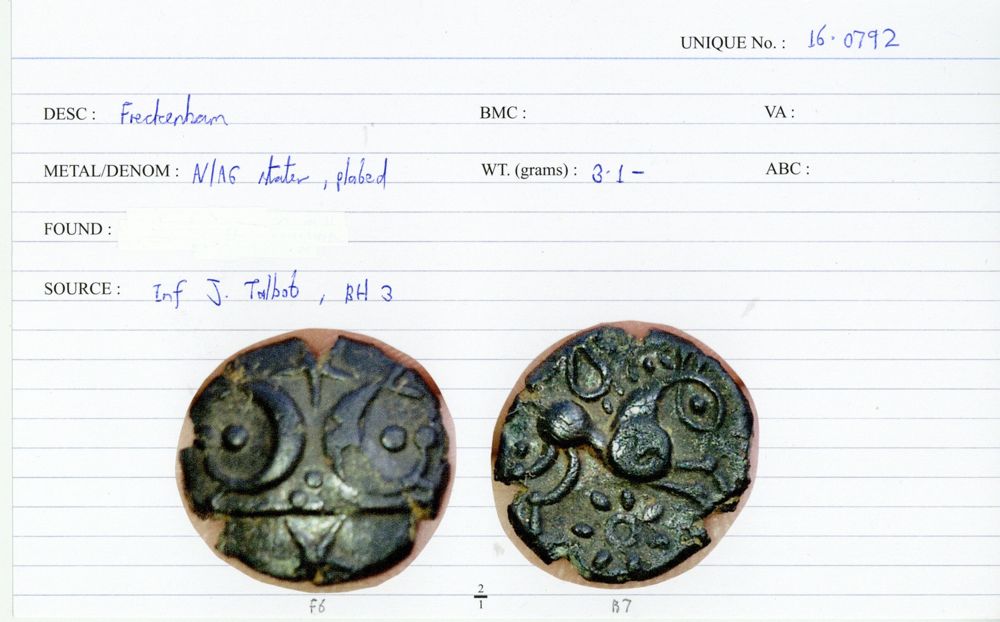 UNIQUE No. : 16·0792
DESC : Freckenham BMC : VA :
METAL/DENOM : N/AG stater, plated WT. (grams) : 3·1– ABC :
FOUND :
SOURCE : Inf J. Talbot, BH 3
2
1
F6 B7